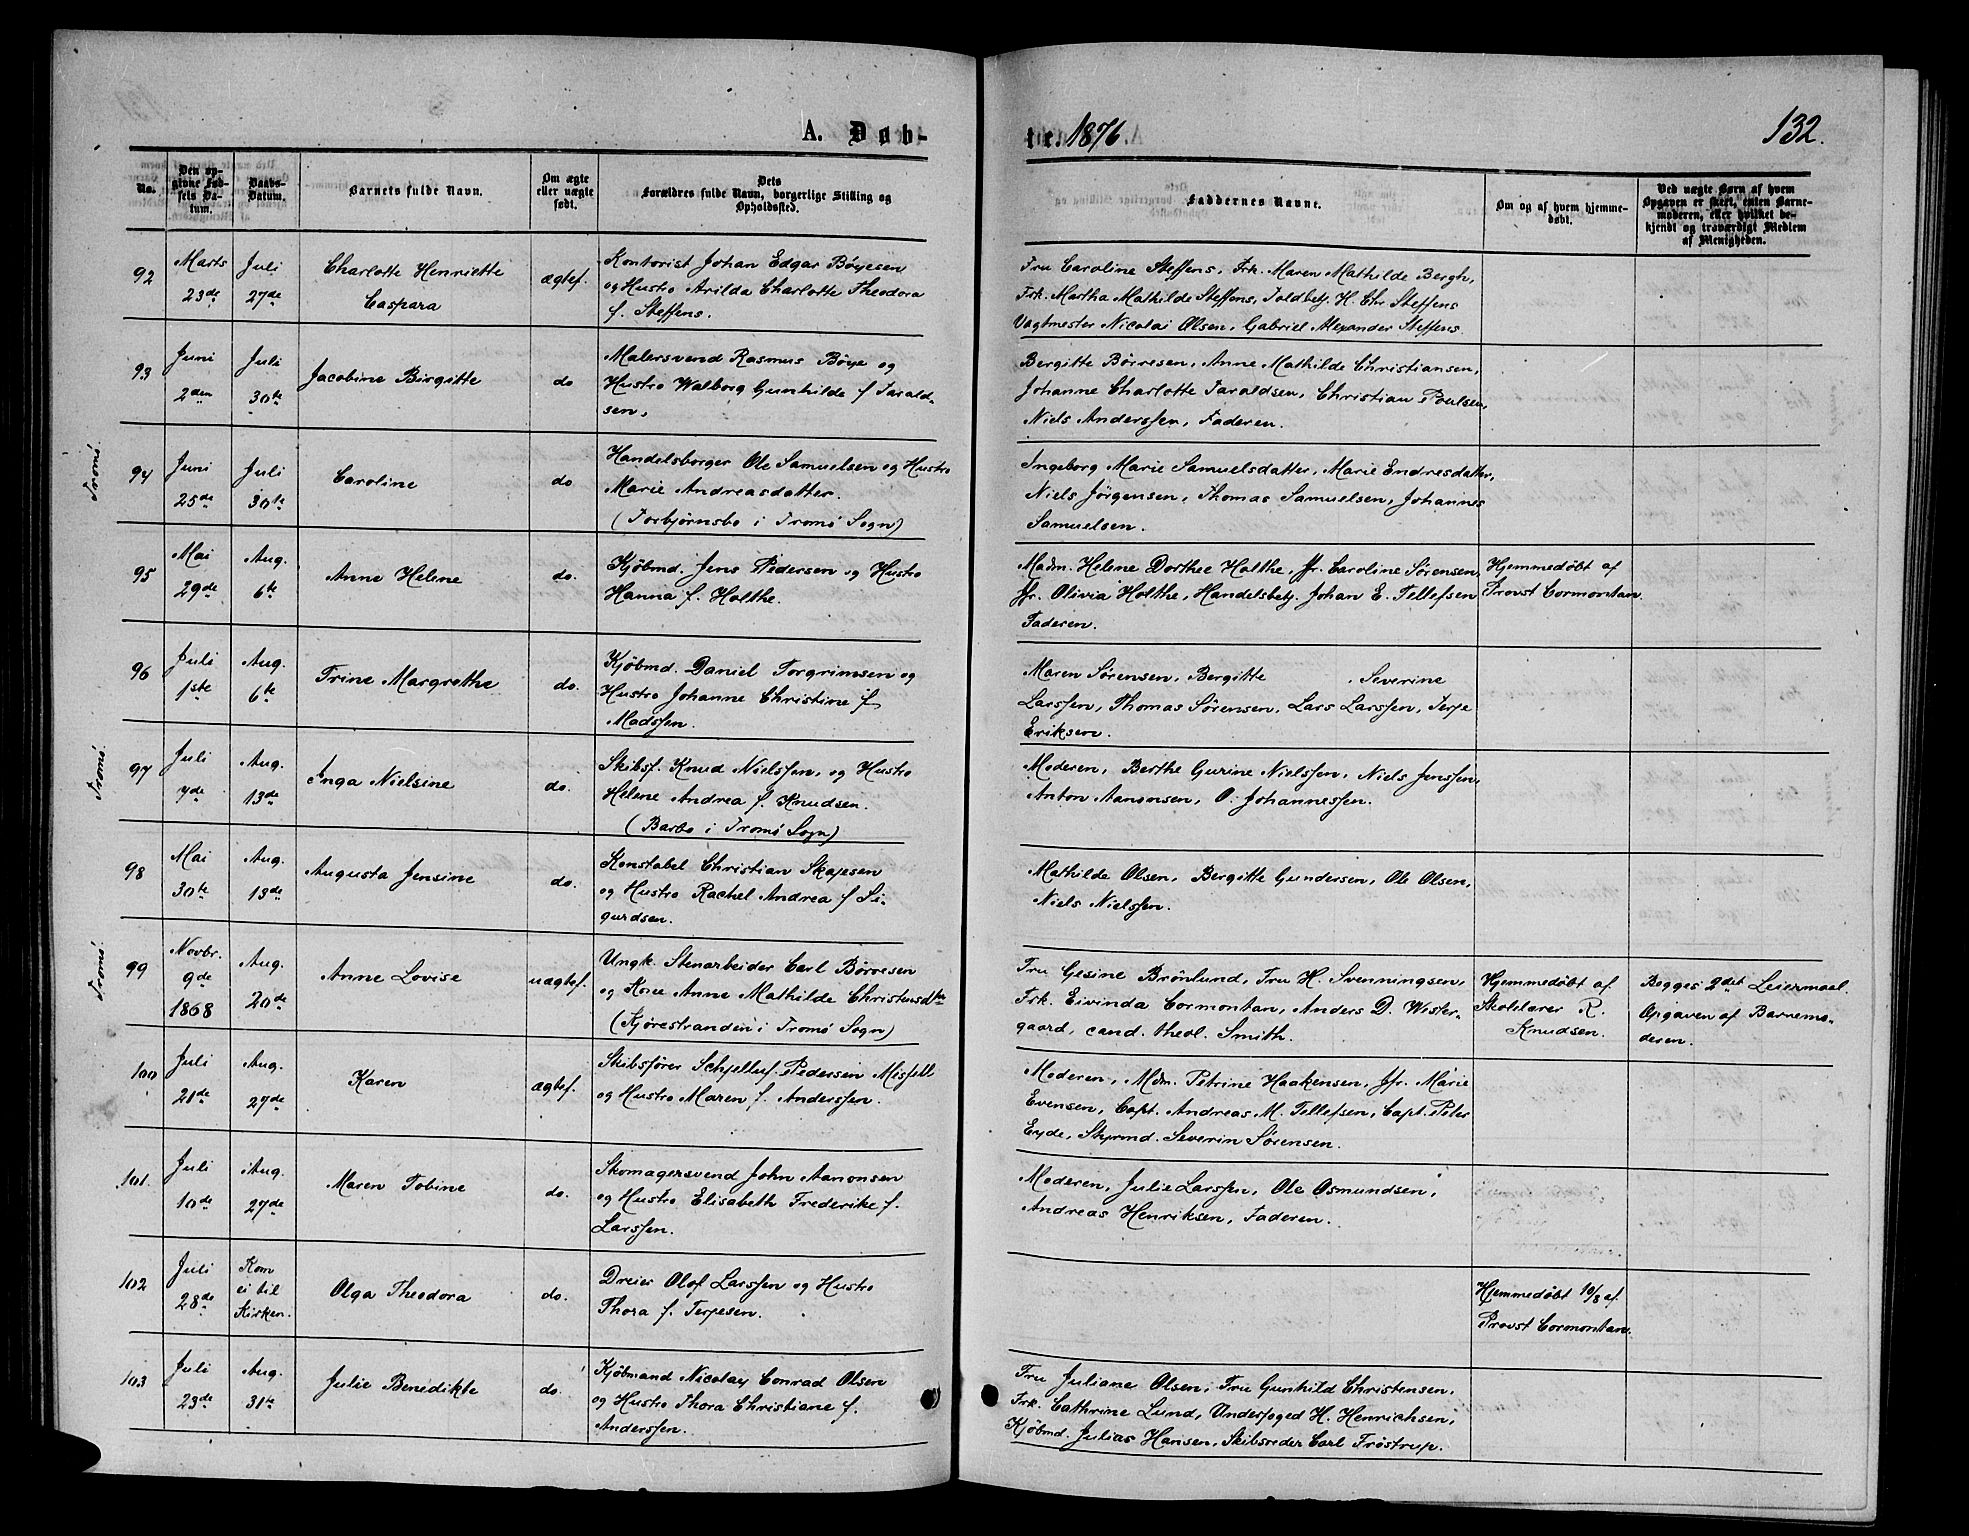 A. Døb-
te. 1876.
132.
No.
Den op-
givne Fød-
sels Da-
tum.
Daabs-
Datum.
Barnets fulde Navn.
Om ægte
eller uægte
født.
Dets
Forældres fulde Navn, borgerlige Stilling og
Opholdssted.
Faddernes Navne.
Om og af hvem hjemme-
døbt.
Ved uægte Børn af hvem
Opgaven er skeet, enten Barne-
moderen, eller hvilket be-
kjendt og troværdigt Medlem
af Menigheden.
92
Marts
23de
Juli
27de
Charlotte Henriette
Caspara
ægtef.
Kontorist Johan Edgar Böyesen
og Hustro Arilda Charlotte Theodora
f. Steffens.
Fru Caroline Steffens, Frk. Maren Mathilde Bergh,
Frk. Martha Mathilde Steffens, Toldbetj. H. Chr. Steffens
Vagtmester Nicolai Olsen, Gabriel Alexander Steffens
93
Juni
2den
Juli
30te
Jacobine Birgitte
do
Malersvend Rasmus Böye og
Hustro Walborg Gunhilde f Tarald-
sen,
Bergitte Börresen, Anne Mathilde Christiansen,
Johanne Charlotte Taraldsen, Christian Poulsen,
Niels Anderssen, Faderen.
Tromö.
94
Juni
25de
Juli
30te
Caroline
do
Handelsborger Ole Samuelsen og Hustro
Marie Andreasdatter.
(Torbjørnsbo i Tromö Sogn)
Ingeborg Marie Samuelsdatter, Marie Endresdatter,
Niels Jörgensen, Thomas Samuelsen, Johannes
Samuelsen.
95
Mai
29de
Aug.
6te
Anne Helene
do.
Kjöbmd. Jens Pedersen og Hustro
Hanna f. Holthe.
Madm. Helene Dorthee Holthe, Jfr. Caroline Sörensen,
Jfr. Olivia Holthe, Handelsbetj. Johan E. Tellefsen
Faderen.
Hjemmedöbt af
Provst Cormontan.
96
Juli
1ste
Aug.
6te
Trine Margrethe
do.
Kjöbmd. Daniel Torgrimsen og
Hustro Johanne Christine f
Madssen.
Maren Sörensen, Bergitte , Severine
Larssen, Thomas Sörensen, Lars Larssen, Terje
Eriksen.
Tromö.
97
Juli
7de
Aug.
13de
Inga Nielsine
do.
Skibsf. Knud Nielssen, og Hustro
Helene Andrea f. Knudsen.
(Barbo i Tromö Sogn)
Moderen, Berthe Gurine Nielssen, Niels Jenssen,
Anton Aanonsen, O. Johannessen.
98
Mai
30te
Aug.
13de
Augusta Jensine
do.
Konstabel Christian Skajesen
og Hustro Rachel Andrea f Si-
gurdsen.
Mathilde Olsen, Bergitte Gundersen, Ole Olsen,
Niels Nielssen.
Tromö.
99
Novbr.
9de
1868
Aug.
20de
Anne Lovise
uægtef.
Ungk. Stenarbeider Carl Börresen
og Kone Anne Mathilde Christensdtr
(Kjörestranden i Tromö Sogn)
Fru Gesine Brönlund, Fru H. Svenningsen,
Frk. Eivinda Cormontan, Anders D. Wester-
gaard, cand. theol. Smith.
Hjemmedöbt af
Skolelærer R.
Knudsen.
Begges 2det Leiermaal.
Opgaven af Barnemo-
deren.
100
Juli
21de
Aug.
27de
Karen
ægtef.
Skibsfører Schjelluf Pedersen Misfell
og Hustro Maren f. Anderssen.
Moderen, Mdm. Petrine Haakensen, Jfr. Marie
Evensen, Capt. Andreas M. Tellefsen, Capt. Peter
Eyde, Styrmd. Severin Sörensen.
101.
Juli
10de
Aug.
27de
Maren Tobine
do.
Skomagersvend John Aanonsen
og Hustro Elisabeth Frederike f.
Larssen.
Moderen, Julie Larssen, Ole Osmundsen,
Andreas Henriksen, Faderen.
102
Juli
28de
Kom
ei til
Kirken.
Olga Theodora
do.
Dreier Olof Larssen og Hustro
Thora f. Terjesen.
Hjemmedöbt 10/8 af
Provst Cormontan.
103
Juli
23de
Aug.
31te
Julie Benedikte
do.
Kjöbmand Nicolay Conrad Olsen
og Hustro Thora Christiane f.
Anderssen.
Fru Juliane Olsen, Fru Gunhild Christensen,
Frk. Cathrine Lund, Underfoged H. Henrichsen,
Kjöbmd. Julias Hansen, Skibsreder Carl Fröstrup.